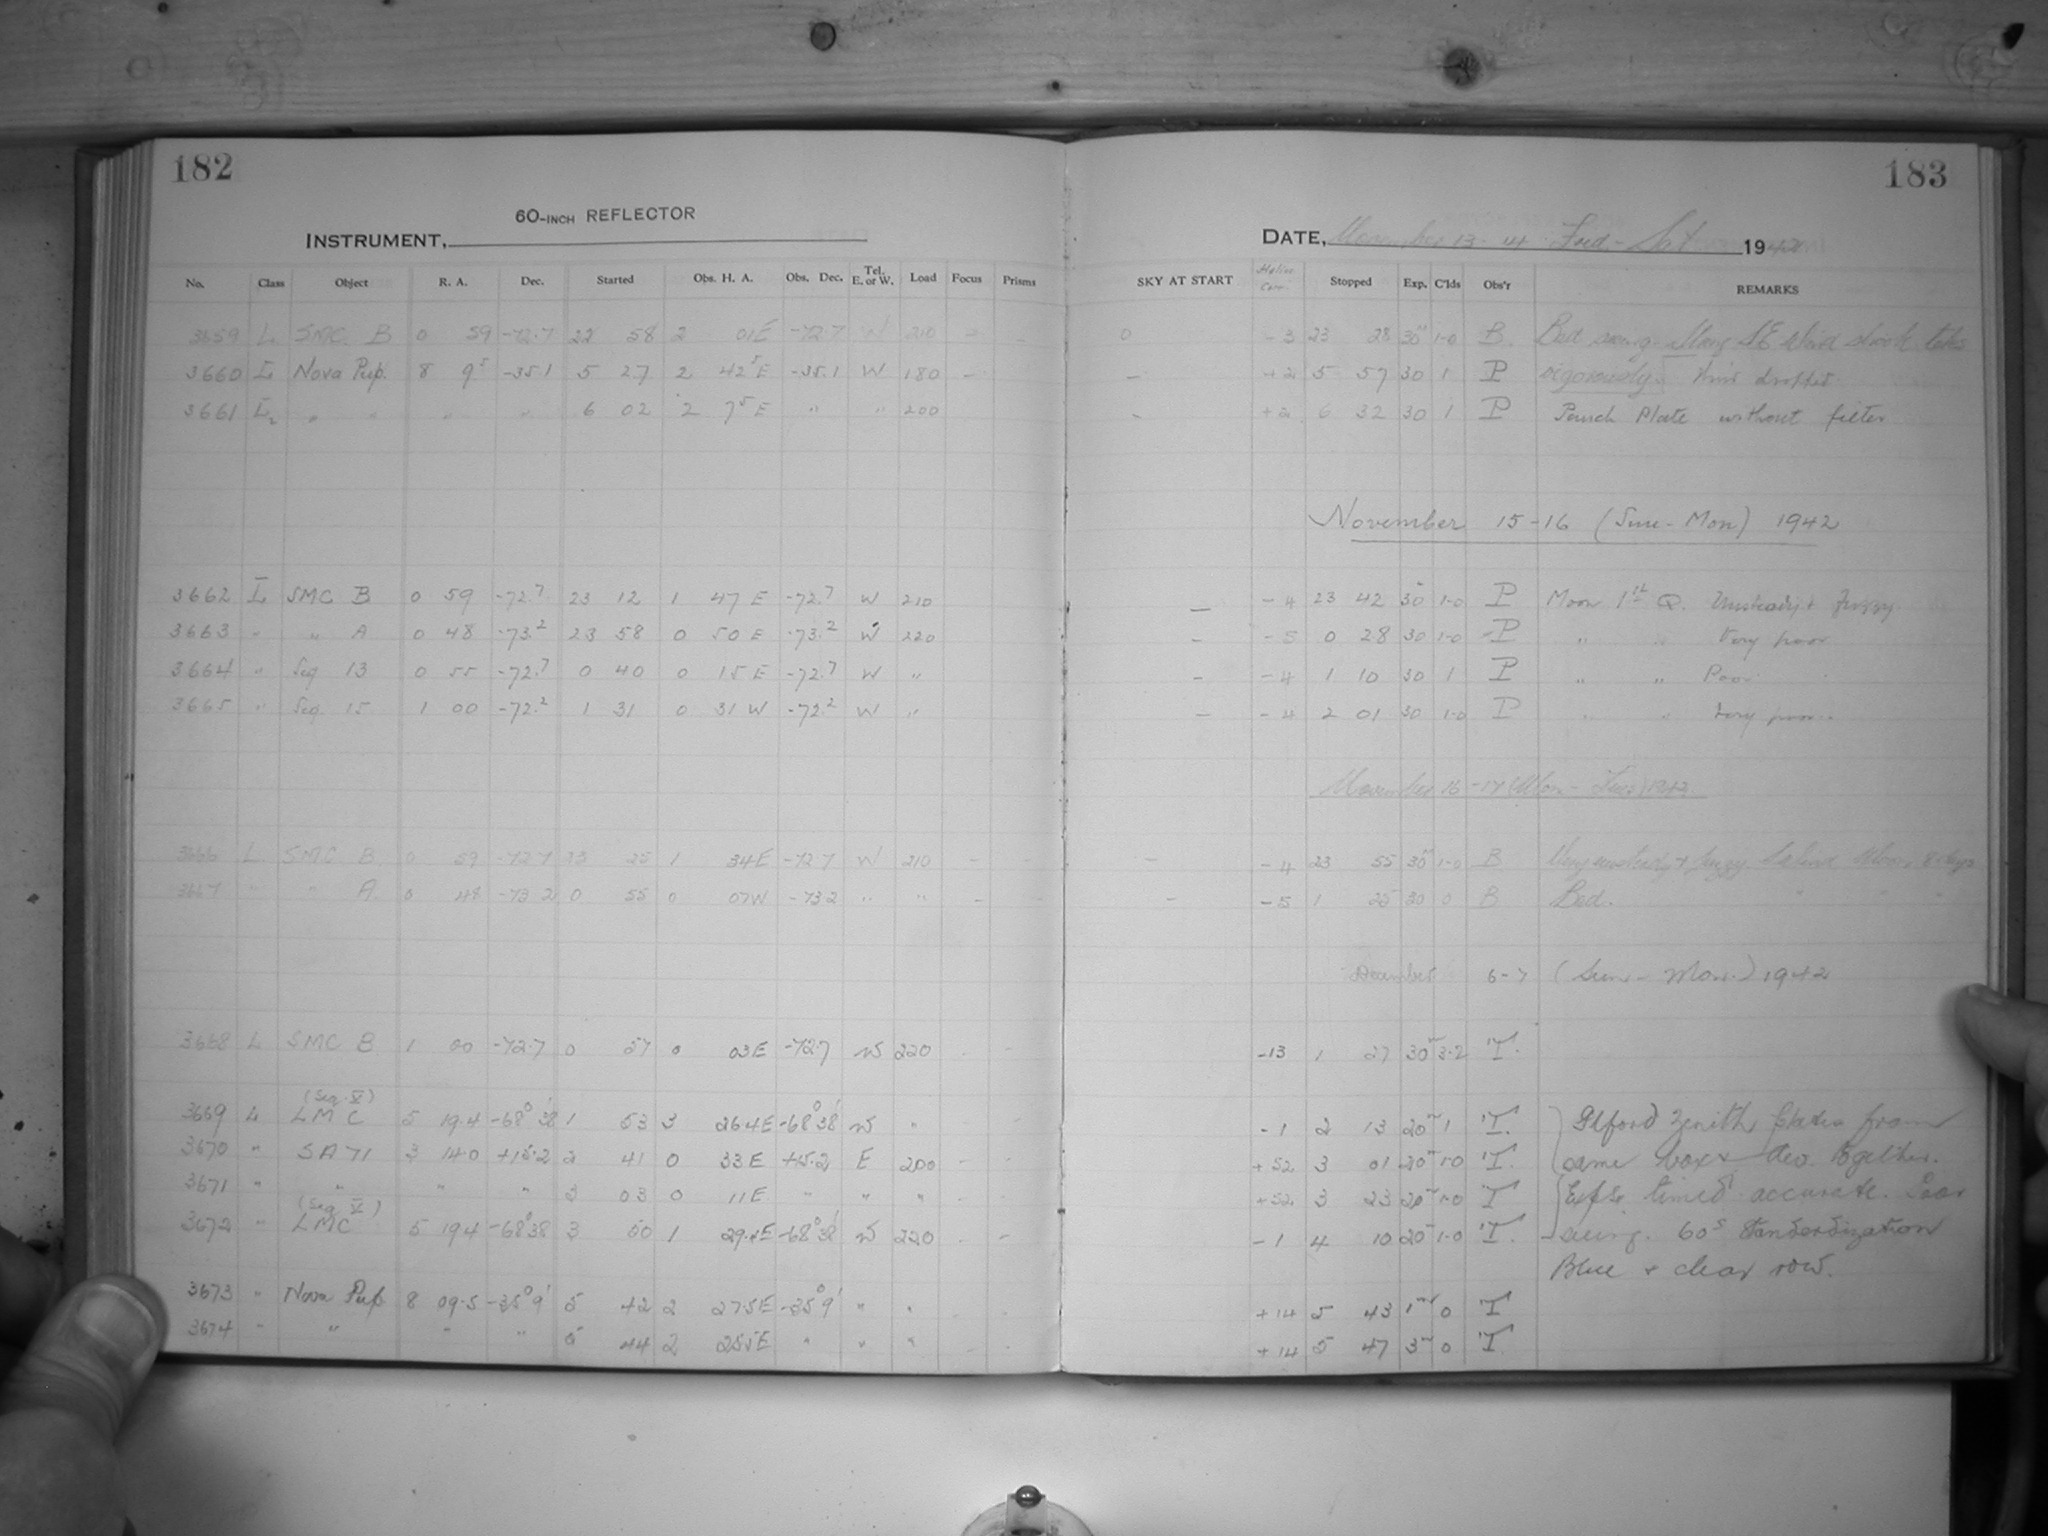 182
60-INCH REFLECTOR
INSTRUMENT,
No. Class Object R. A. Dec. Started Obs. H. A. Obs. Dec. Tel. E. or W. Load Focus Prisms
3659 L SMC B 0 59 -72.7 22 58 2 01E -72.7 W 210 -
3660 L Nova Pup. 8 9.5 -35.1 5 27 2 42.5 E -35.1 W 180 -
3661 L2 " " " " 6 02 2 7.5 E " " 200
3662 L SMC B 0 59 -72.7 23 12 1 47 E -72.7 W 210
3663 " " A 0 48 -73.2 23 58 0 50 E -73.2 W 220
3664 " Seq 13 0 55 -72.7 0 40 0 15 E -72.7 W "
3665 " Seq. 15 1 00 -72.2 1 31 0 31 W -72.2 W "
3666 L SMC B 0 59 -72.7 23 25 1 34E -72.7 W 210 - -
3667 " " A 0 48 -73.2 0 55 0 07W -73.2 " " - -
3668 L SMC B 1 00 -72.7 0 57 0 03E -72.7 W 220 - -
(Seq. V)
3669 L LMC 5 19.4 -68°38' 1 53 3 26.4E -68°38' W "
3670 " SA 71 3 14.0 +15.2 2 41 0 33E +15.2 E 200 - -
3671 " " " " 3 03 0 11E " " " - -
(Seq V)
3672 " LMC 5 19.4 -68°38 3 50 1 29.4E -68°38' W 220 - -
3673 " Nova Pup 8 09.5 -35°9' 5 42 2 27.5E -35°9' " " - -
3674 " " " " 5 44 2 25.5E " " " - -
183
DATE, November 13-14 Frid - Sat 1942
SKY AT START Stopped Exp. C'lds Obs'r REMARKS
0 -3 23 28 30m 1-0 B. Bad seeing. Strong SE Wind shook tube
- +2 5 57 30 1 P vigorously.
- +2 6 32 30 1 P Plate without filter
November 15-16 (Sun-Mon) 1942
- -4 23 42 30 1-0 P Moon 1st Q. Unsteady & fuzzy.
- -5 0 28 30 1-0 P " " Very poor
- -4 1 10 30 1 P " " Poor
- -4 2 01 30 1-0 P " " Very poor
November 16-17 (Mon - Tues) 1942
- -4 23 55 30m 1-0 B Very unsteady & fuzzy. Moon, 8 days
- -5 1 25 30 0 B Bad. " " "
December 6-7 (Sun - Mon.) 1942
-13 1 27 30m 3-2 T.
-1 2 13 20m 1 T. Ilford Zenith plates from
+52 3 01 20m 1-0 T. same box & dev. together.
+52 3 23 20m 1-0 T Exps. timed accurate. Poor
-1 4 10 20m 1-0 T. seeing. 60s Standardization
Blue & clear row.
+14 5 43 1m 0 T
+14 5 47 3m 0 T.